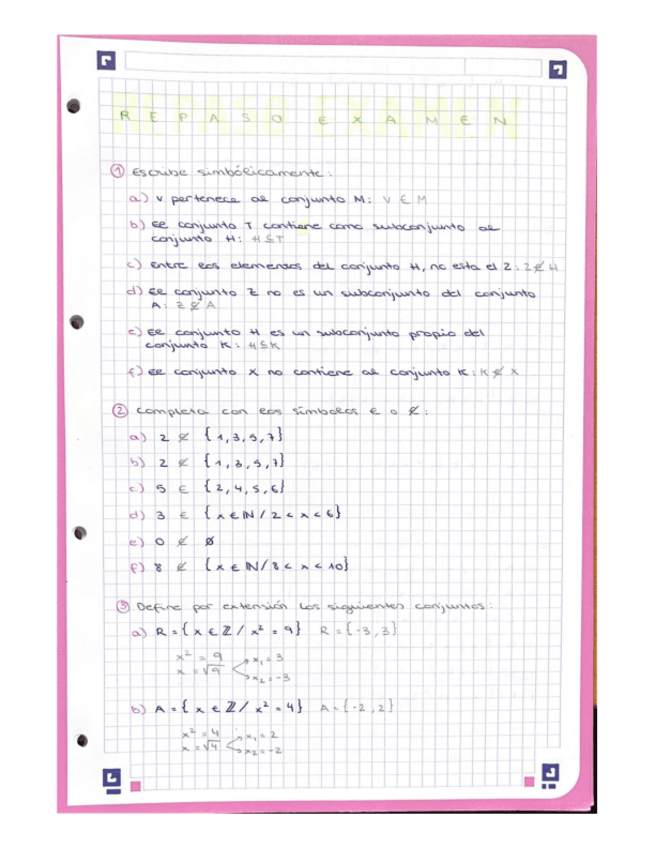 REPASO EXAMEN
① Escribe simbólicamente:
a) v pertenece al conjunto M: V ∈ M
b) El conjunto T contiene como subconjunto al
conjunto H: H ⊆ T
c) Entre los elementos del conjunto H, no esta el 2: 2 ∉ H
d) El conjunto Z no es un subconjunto del conjunto
A: Z ⊄ A
e) El conjunto H es un subconjunto propio del
conjunto K: H ⊆ K
f) El conjunto X no contiene al conjunto K: K ⊄ X
② Completa con los símbolos ∈ o ∉:
a) 2 ∉ {1,3,5,7}
b) 2 ∉ {1,3,5,7}
c) 5 ∈ {2,4,5,6}
d) 3 ∈ {x ∈ ℕ / 2 < x < 6}
e) 0 ∉ ∅
f) 8 ∉ {x ∈ ℕ / 8 < x < 10}
③ Define por extensión los siguientes conjuntos:
a) R = {x ∈ ℤ / x² = 9} R = {-3, 3}
x² = 9
x = √9 x₁ = 3
x₂ = -3
b) A = {x ∈ ℤ / x² = 4} A = {-2, 2}
x² = 4
x = √4 x₁ = 2
x₂ = -2